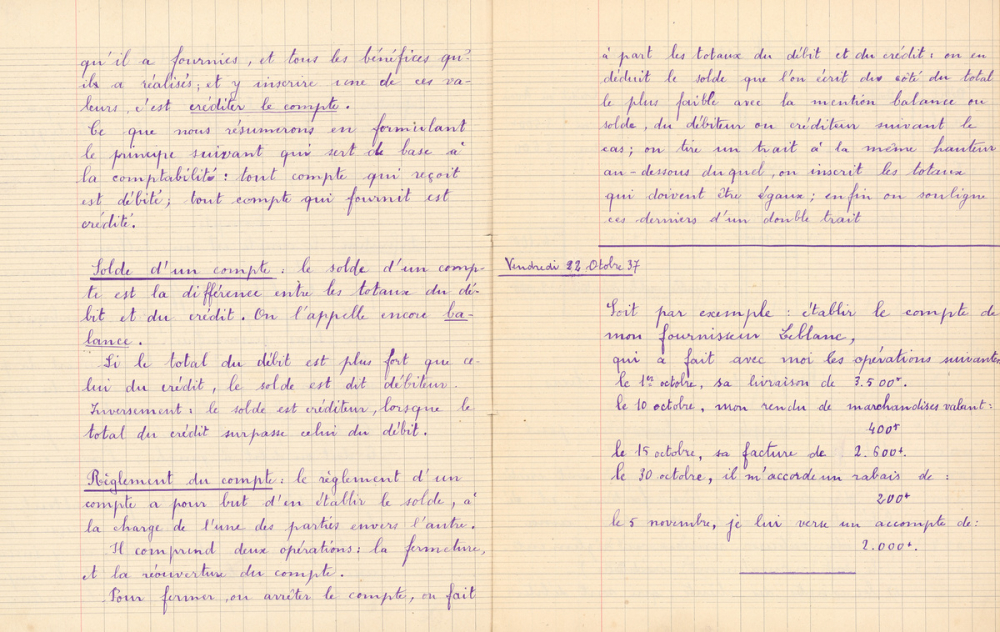 qu'il a fournies, et tous les bénéfices qu'
ils a réalisés; et y inscrire une de ces va-
leurs, c'est créditer le compte.
Ce que nous résumerons en formulant
le principe suivant qui sert de base à
la comptabilité : tout compte qui reçoit
est débité; tout compte qui fournit est
crédité.
Solde d'un compte : le solde d'un comp-
te est la différence entre les totaux du dé-
bit et du crédit. On l'appelle encore ba-
lance.
Si le total du débit est plus fort que ce-
lui du crédit, le solde est dit débiteur.
Inversement : le solde est créditeur, lorsque le
total du crédit surpasse celui du débit.
Règlement du compte : le règlement d'un
compte a pour but d'en établir le solde, à
la charge de l'une des parties envers l'autre.
Il comprend deux opérations : la fermeture,
et la réouverture du compte.
Pour fermer, ou arrêter le compte, on fait
à part les totaux du débit et du crédit : on en
déduit le solde que l'on écrit du côté du total
le plus faible avec la mention balance ou
solde, du débiteur ou créditeur suivant le
cas; on tire un trait à la même hauteur
au-dessous duquel, on inscrit les totaux
qui doivent être égaux; enfin on souligne
ces derniers d'un double trait
Vendredi 22 Otobre 37
Soit par exemple : établir le compte de
mon fournisseur Leblanc,
qui a fait avec moi les opérations suivantes
le 1er octobre, sa livraison de 3.500f.
le 10 octobre, mon rendu de marchandises valant :
400f
le 15 octobre, sa facture de 2.600f.
le 30 octobre, il m'accorde un rabais de :
200f
le 5 novembre, je lui verse un accompte de :
2.000f.